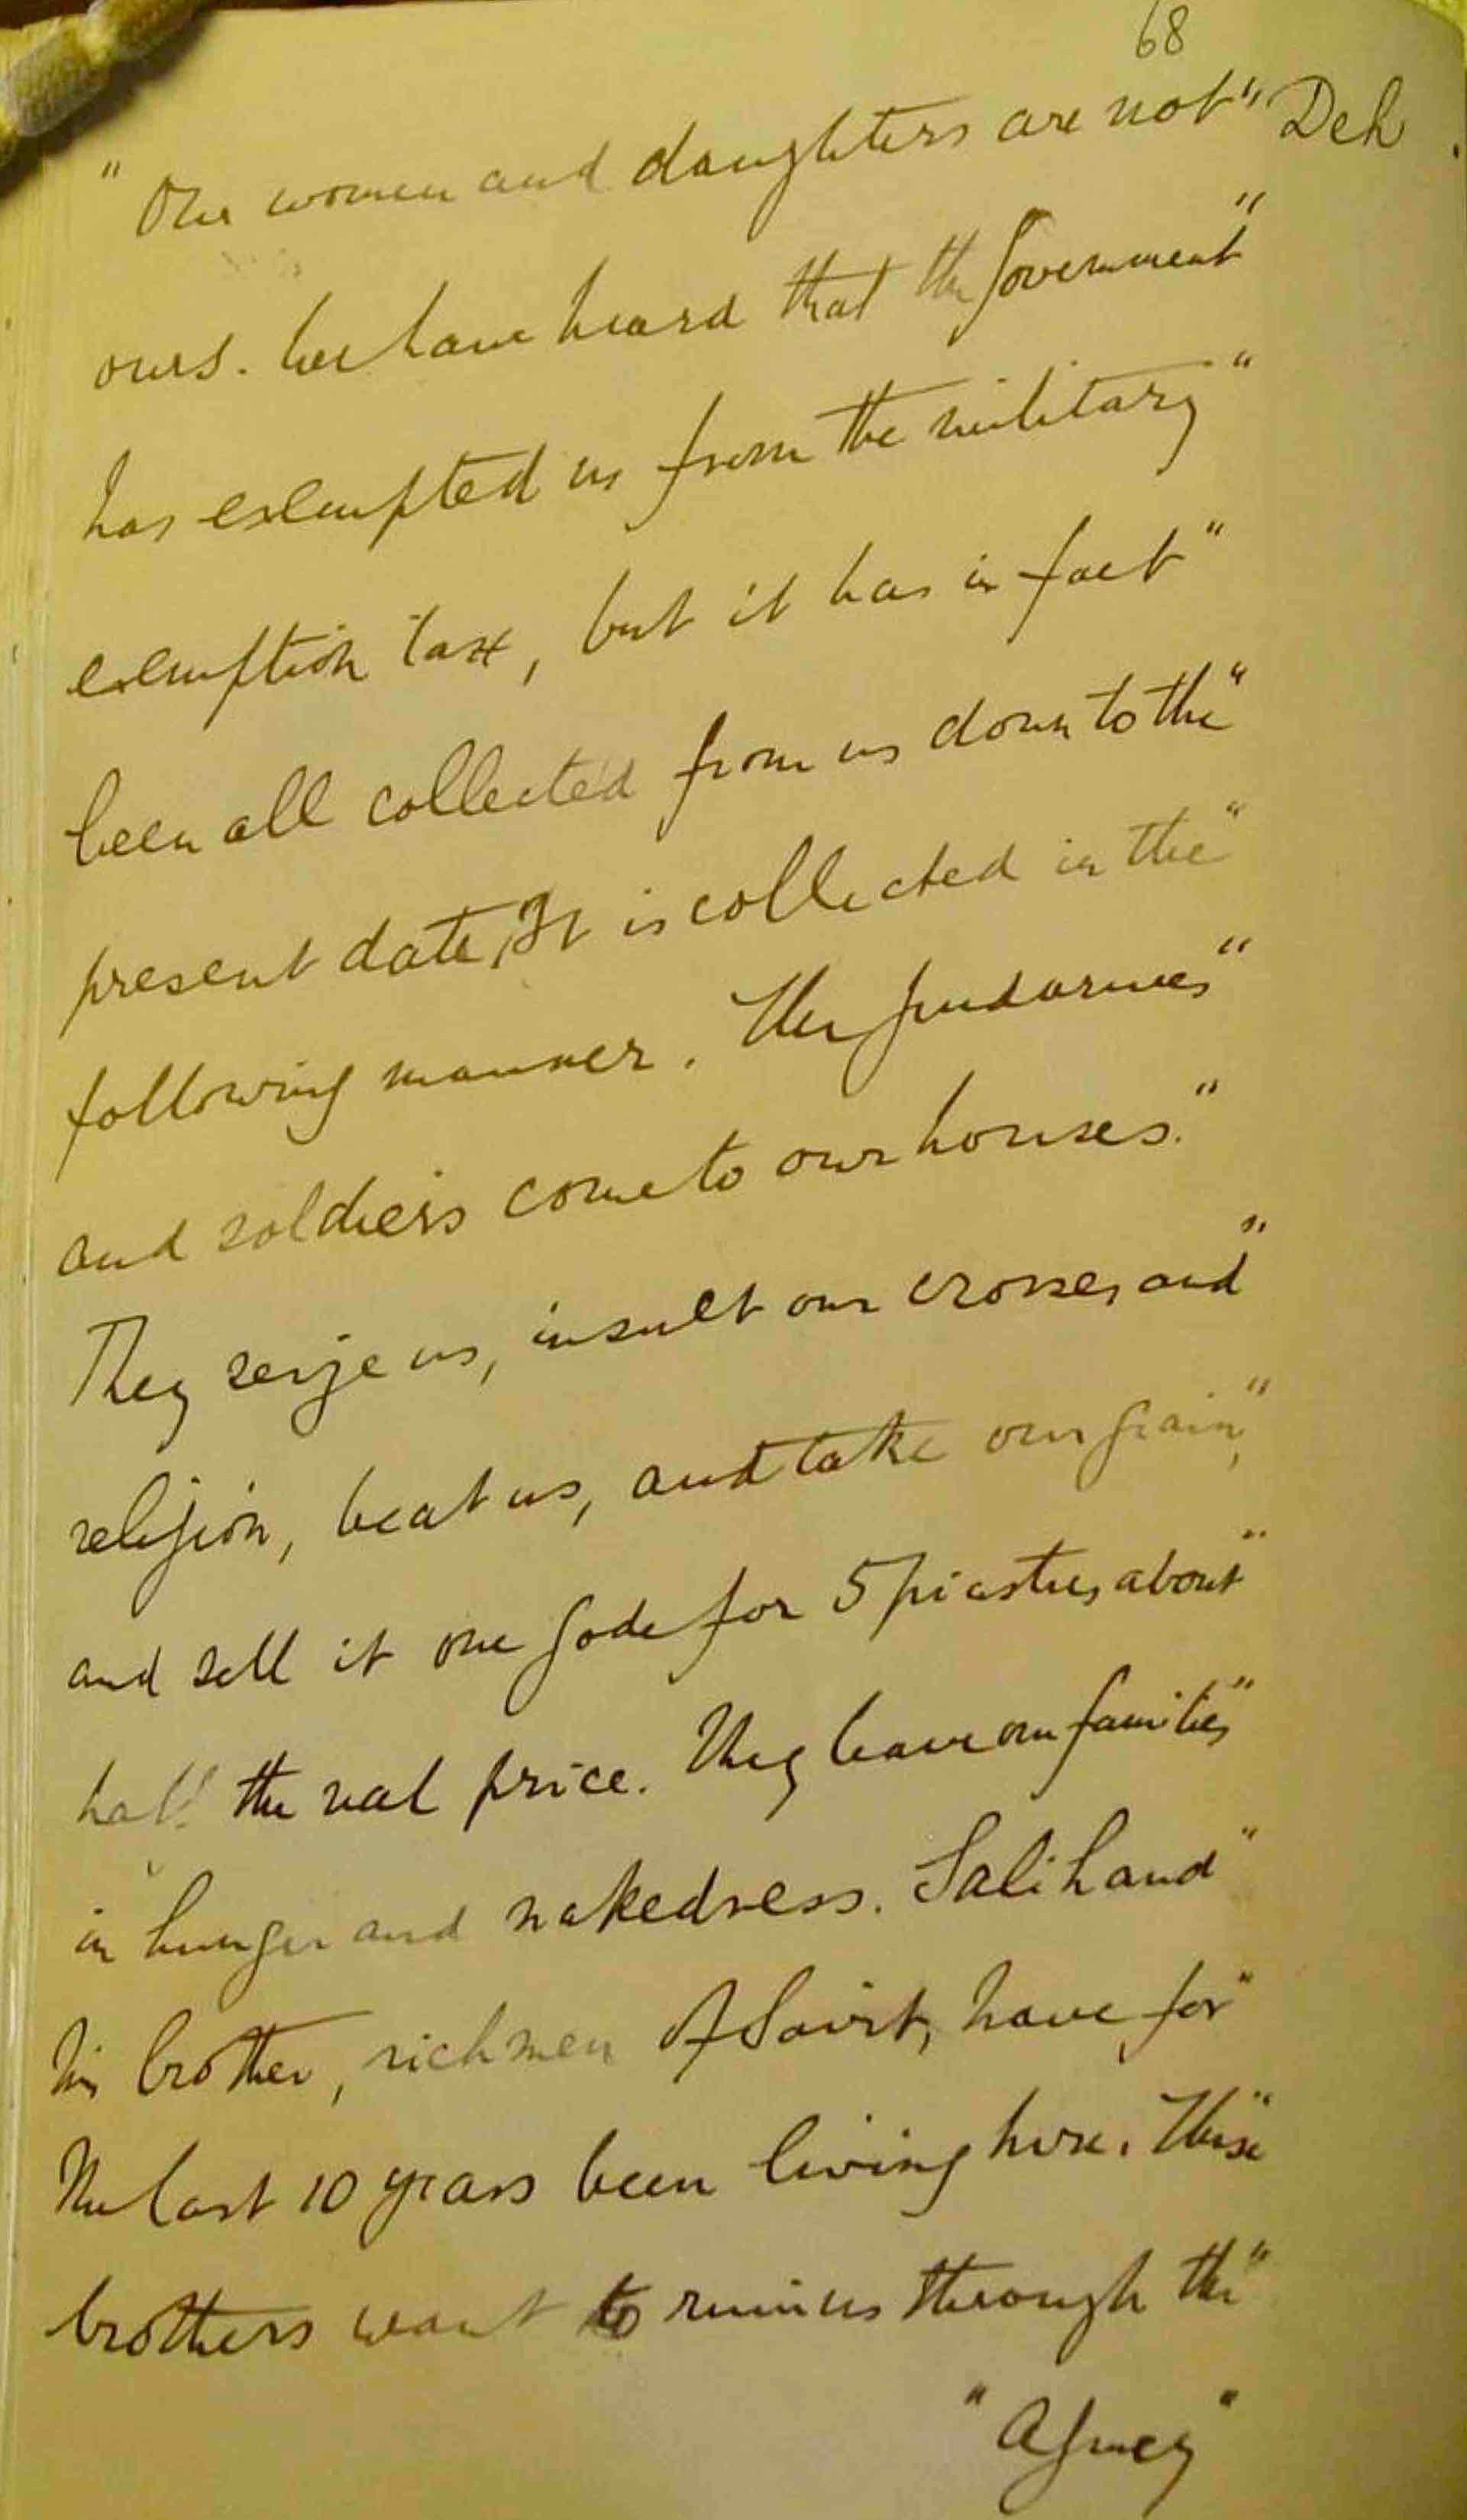 68
" Our women and daughters are not " Deh
ours. We have heard that the Government "
has exempted us from the military "
exemption tax, but it has in fact "
been all collected from us down to the "
present date, It is collected in the "
following manner. The gendarmes "
and soldiers come to our houses. "
They seize us, insult our crosses and "
religion, beat us, and take our grain, "
and sell it one gode for 5 piastres, about "
half the real price. They leave our families "
in hunger and nakedness. Salih and "
his brother, rich men of Sairt, have for "
the last 10 years been living here. These "
brothers want to ruin us through the "
" Agency "